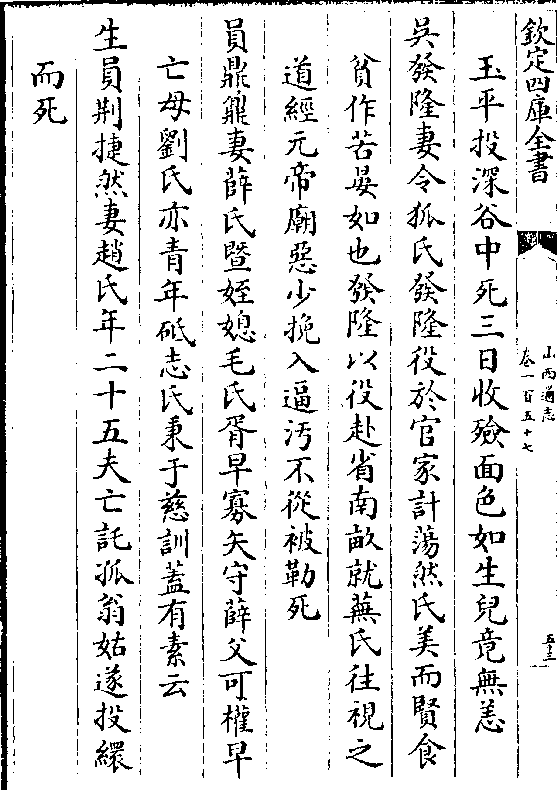 欽定四庫全書
山西通志
卷一百五十七
五十三
玉平投深谷中死三日收殮面色如生兒竟無恙
吳發隆妻令狐氏發隆役於官家計蕩然氏美而賢食
貧作苦晏如也發隆以役赴省南畝就蕪氏往視之
道經元帝廟惡少挽入逼汚不從被勒死
員鼎鼐妻薛氏暨姪媳毛氏胥早寡矢守薛父可權早
亡母劉氏亦青年砥志氏秉于慈訓蓋有素云
生員荆捷然妻趙氏年二十五夫亡託孤翁姑遂投繯
而死